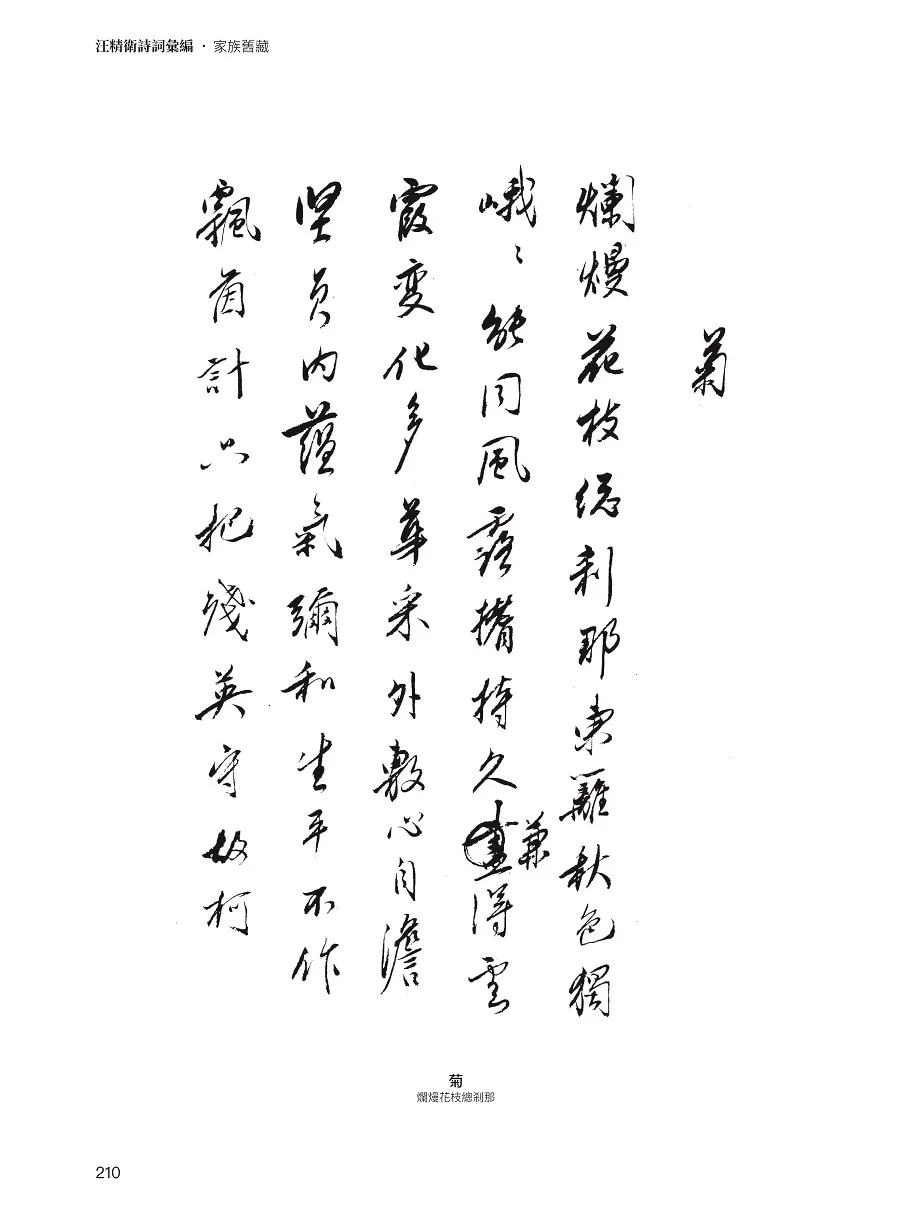 汪精衛詩詞彙編・家族舊藏
菊
爛熳花枝總刹那東籬秋色獨
峨〻能同風露撐持久兼得雲
霞变化多華采外敷心自澹
坚貞内藴氣彌和生平不作
飄茵計只把殘英守故柯
菊
爛熳花枝總剎那
210